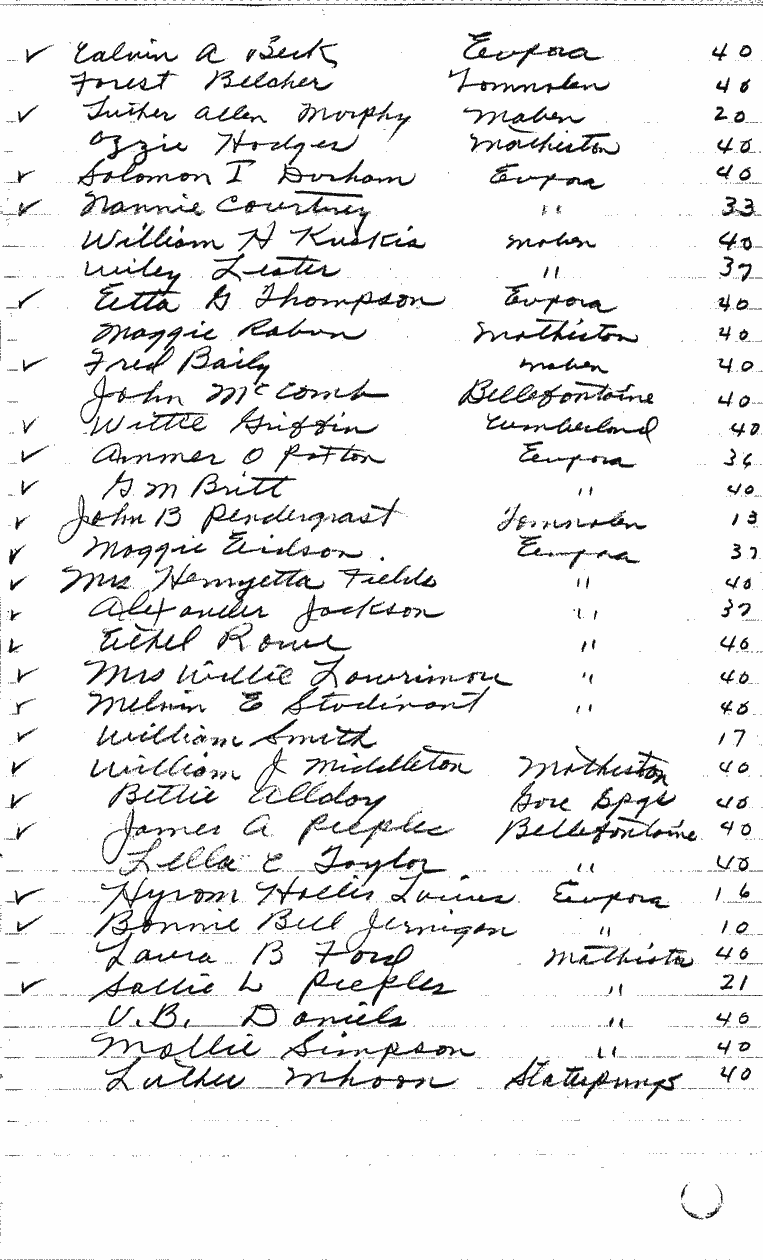 ✓ Calvin A Beck Eupora 40
Forest Belcher Tomnolen 40
✓ Luther Allen Murphy Maben 20
Ozzie Hodges Mathiston 40
✓ Solomon I Durham Eupora 40
✓ Nannie Courtney " 33
William H Kuskis Maben 40
Wiley Lester " 37
✓ Etta G Thompson Eupora 40
Maggie Rabun Mathiston 40
✓ Fred Baily Maben 40
John McComb Bellefontaine 40
✓ Willie Griffin Cumberland 40
✓ Ammer O Patton Eupora 36
✓ G M Britt " 40
✓ John B Pendergrast Tomnolen 13
✓ Maggie Eidson. Eupora 37
✓ Mrs Henryetta Fields " 40
✓ Alexander Jackson " 37
✓ Ethel Rowe " 40
✓ Mrs Willie Lawrimore " 40
✓ Melvin E Stodivant " 40
✓ William Smith 17
✓ William J Middleton Mathiston 40
✓ Bettie Allday Gore Spgs 40
✓ James A Peeples Bellefontaine 40
Lella E Taylor " 40
✓ Hyrom Hollis Eupora 16
✓ Bonnie Bell Jernigan " 10
Laura B Ford Mathista 40
✓ Sallie L Peeples " 21
V.B. Daniels " 40
Mollie Simpson " 40
Luther Mhoon Statesprings 40